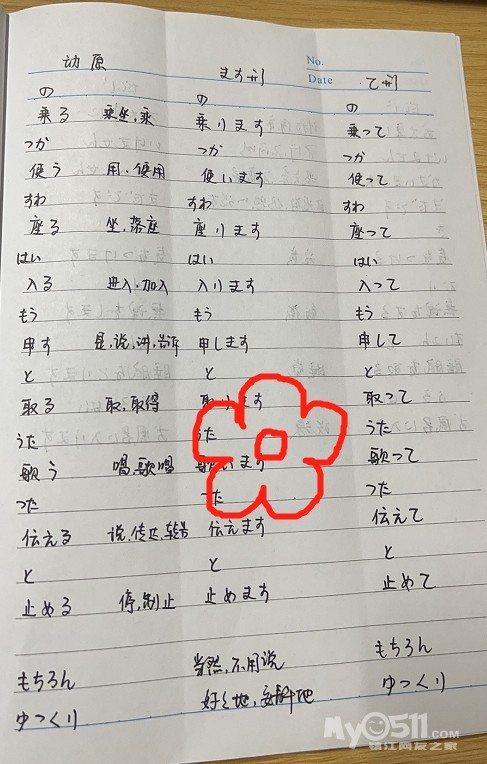 No.
动原 ます形 Date て形
の の の
乗る 乗坐,乘 乗ります 乗って
つか つか つか
使う 用,使用 使います 使って
すわ すわ すわ
座る 坐,落座 座ります 座って
はい はい はい
入る 进入,加入 入ります 入って
もう もう もう
申す 是,说,讲,告诉 申します 申して
と と と
取る 取,取得 取ります 取って
うた うた うた
歌う 唱,歌唱 歌います 歌って
つた つた つた
伝える 说,传达,转告 伝えます 伝えて
と と と
止める 停,制止 止めます 止めて
もちろん 当然,不用说 もちろん
ゆっくり 好好地,安静地 ゆっくり
My0511.com
镇江网友之家